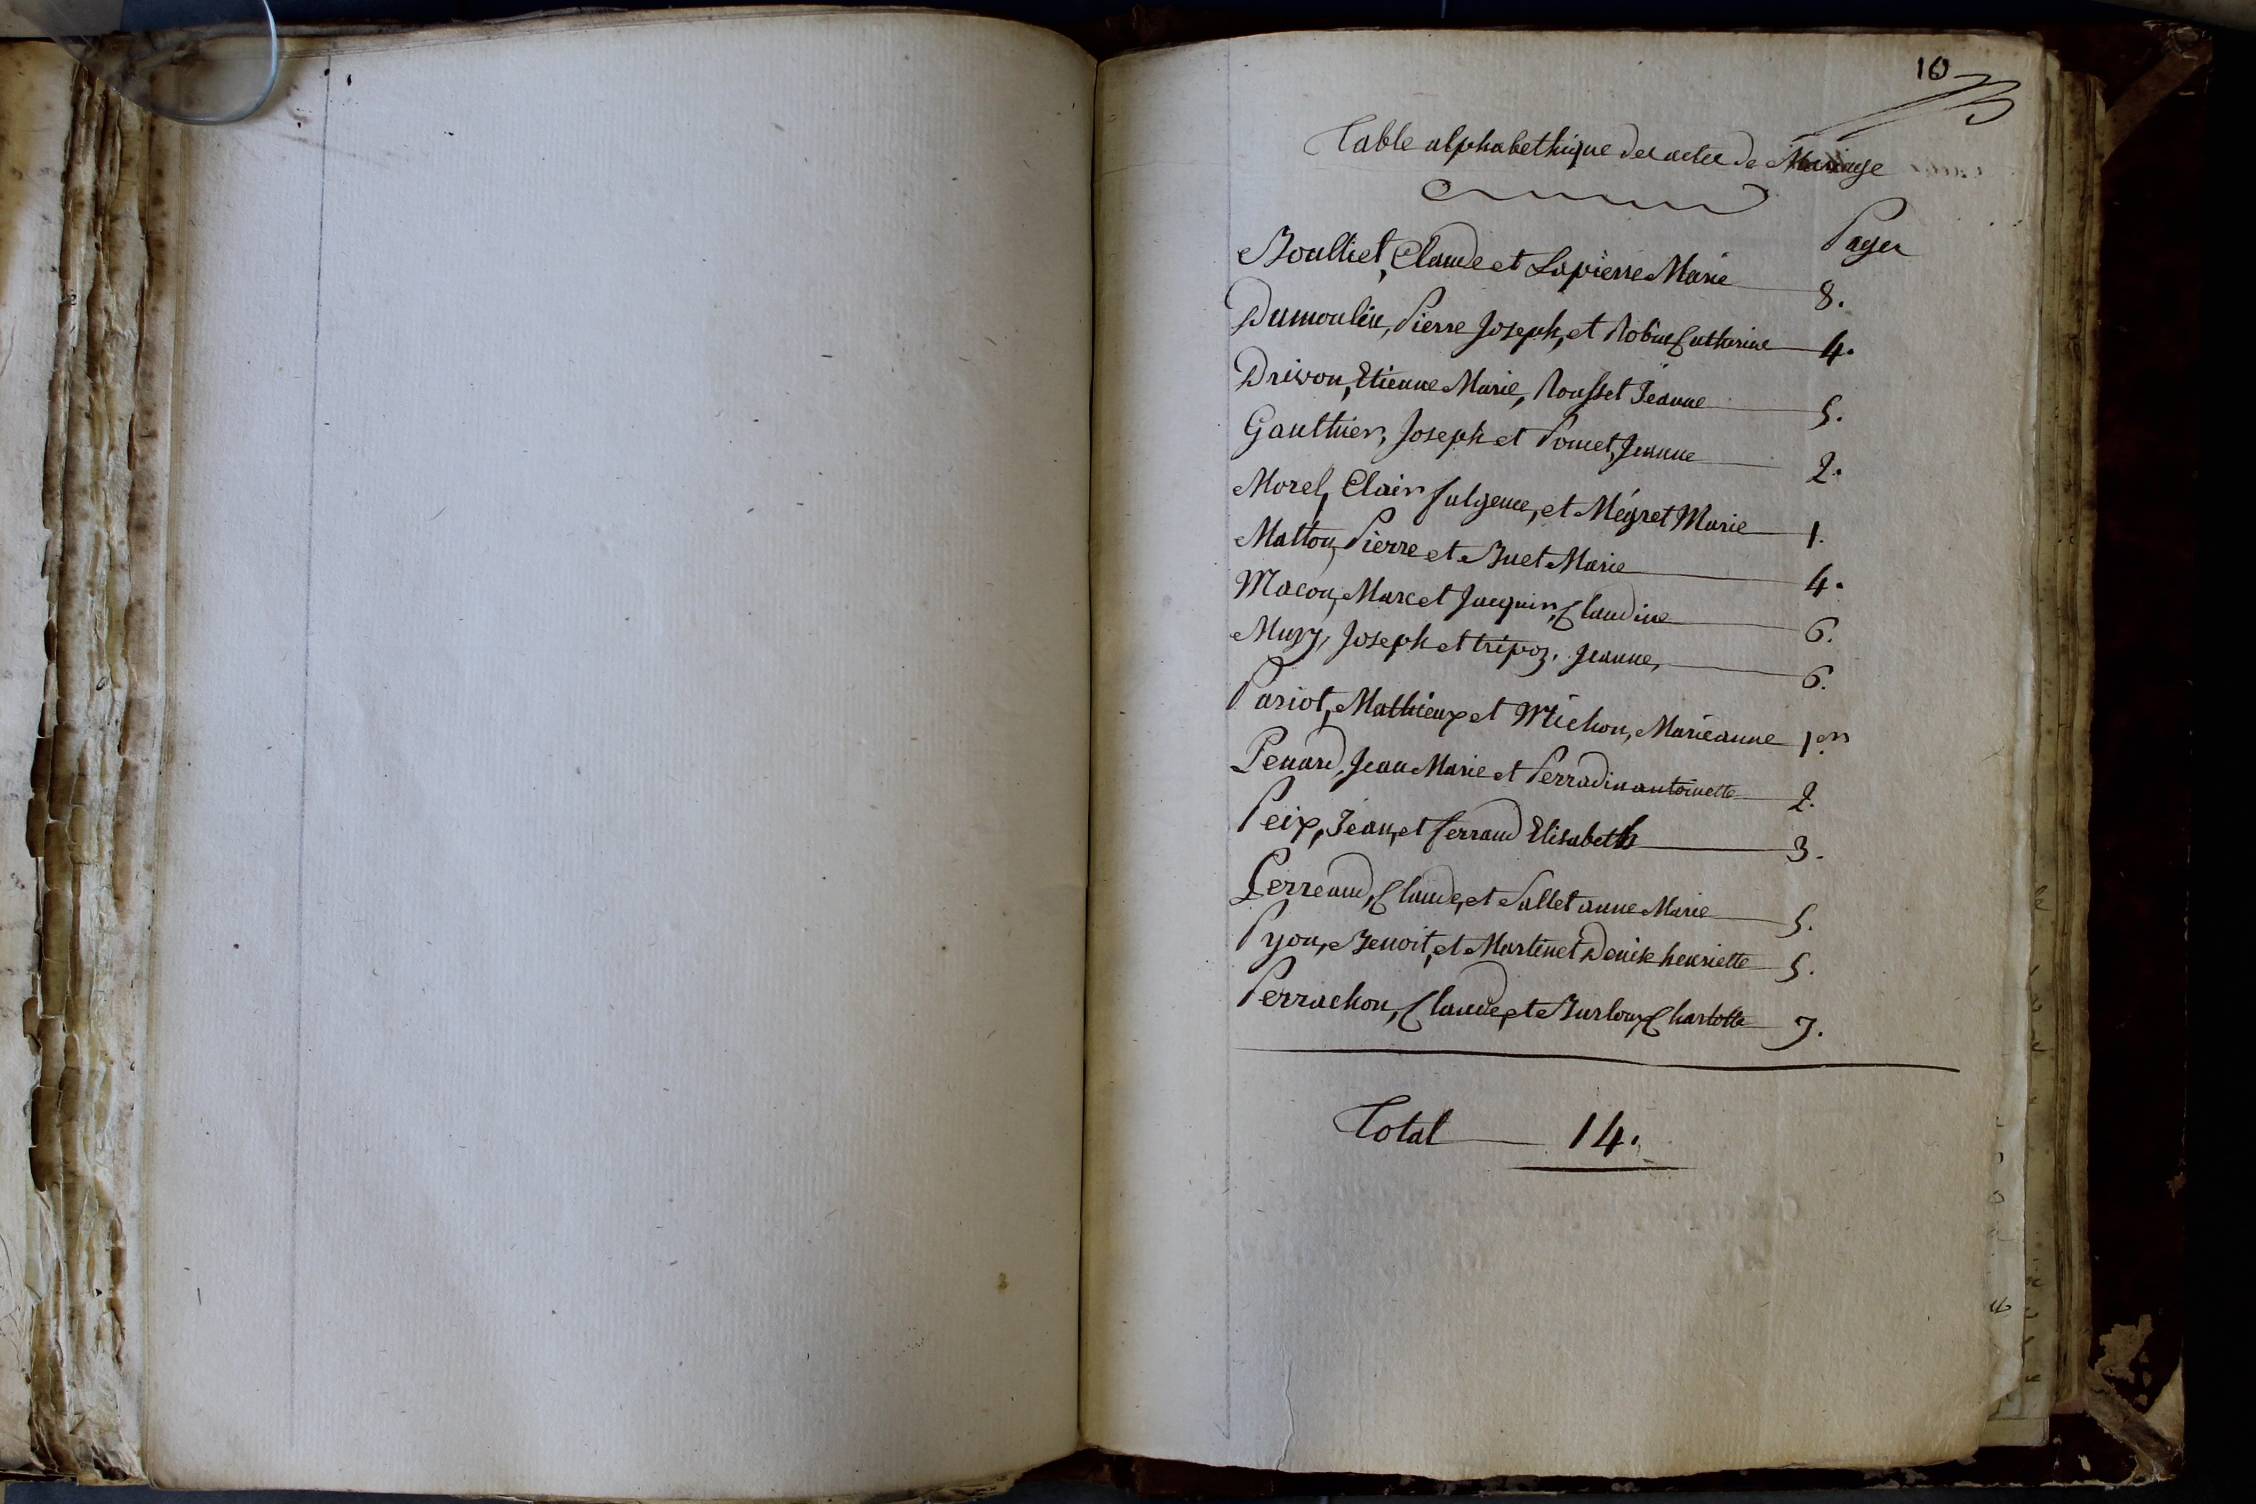 10
Table alphabethique des actes de Mariage
Pages
Boulliet, Claude et Lapierre Marie 8.
Dumoulin, Pierre Joseph, et Robin Catherine 4.
Drivon, Etienne Marie, Rousset Jeanne 5.
Gauthier, Joseph et Pomet, Jeanne 2.
Morel, Clair fulgence, et Mégret Marie 1.
Matton, Pierre et Buet Marie 4.
Macon, Marc et Jacquin, Claudine 6.
Mury, Joseph et tripoz, Jeanne, 6.
Pariot, Mathieux et Michon, Marieanne 1er
Penard, Jean Marie et Perradin antoinette 2.
Peix, Jean, et ferrand Elisabeth 3.
Perreaud, Claude, et Sallet anne Marie 5.
Pyon, Benoit, et Martinet Denise henriette 5.
Perrachon, Claude, et Burloux Charlotte 7.
Total 14.